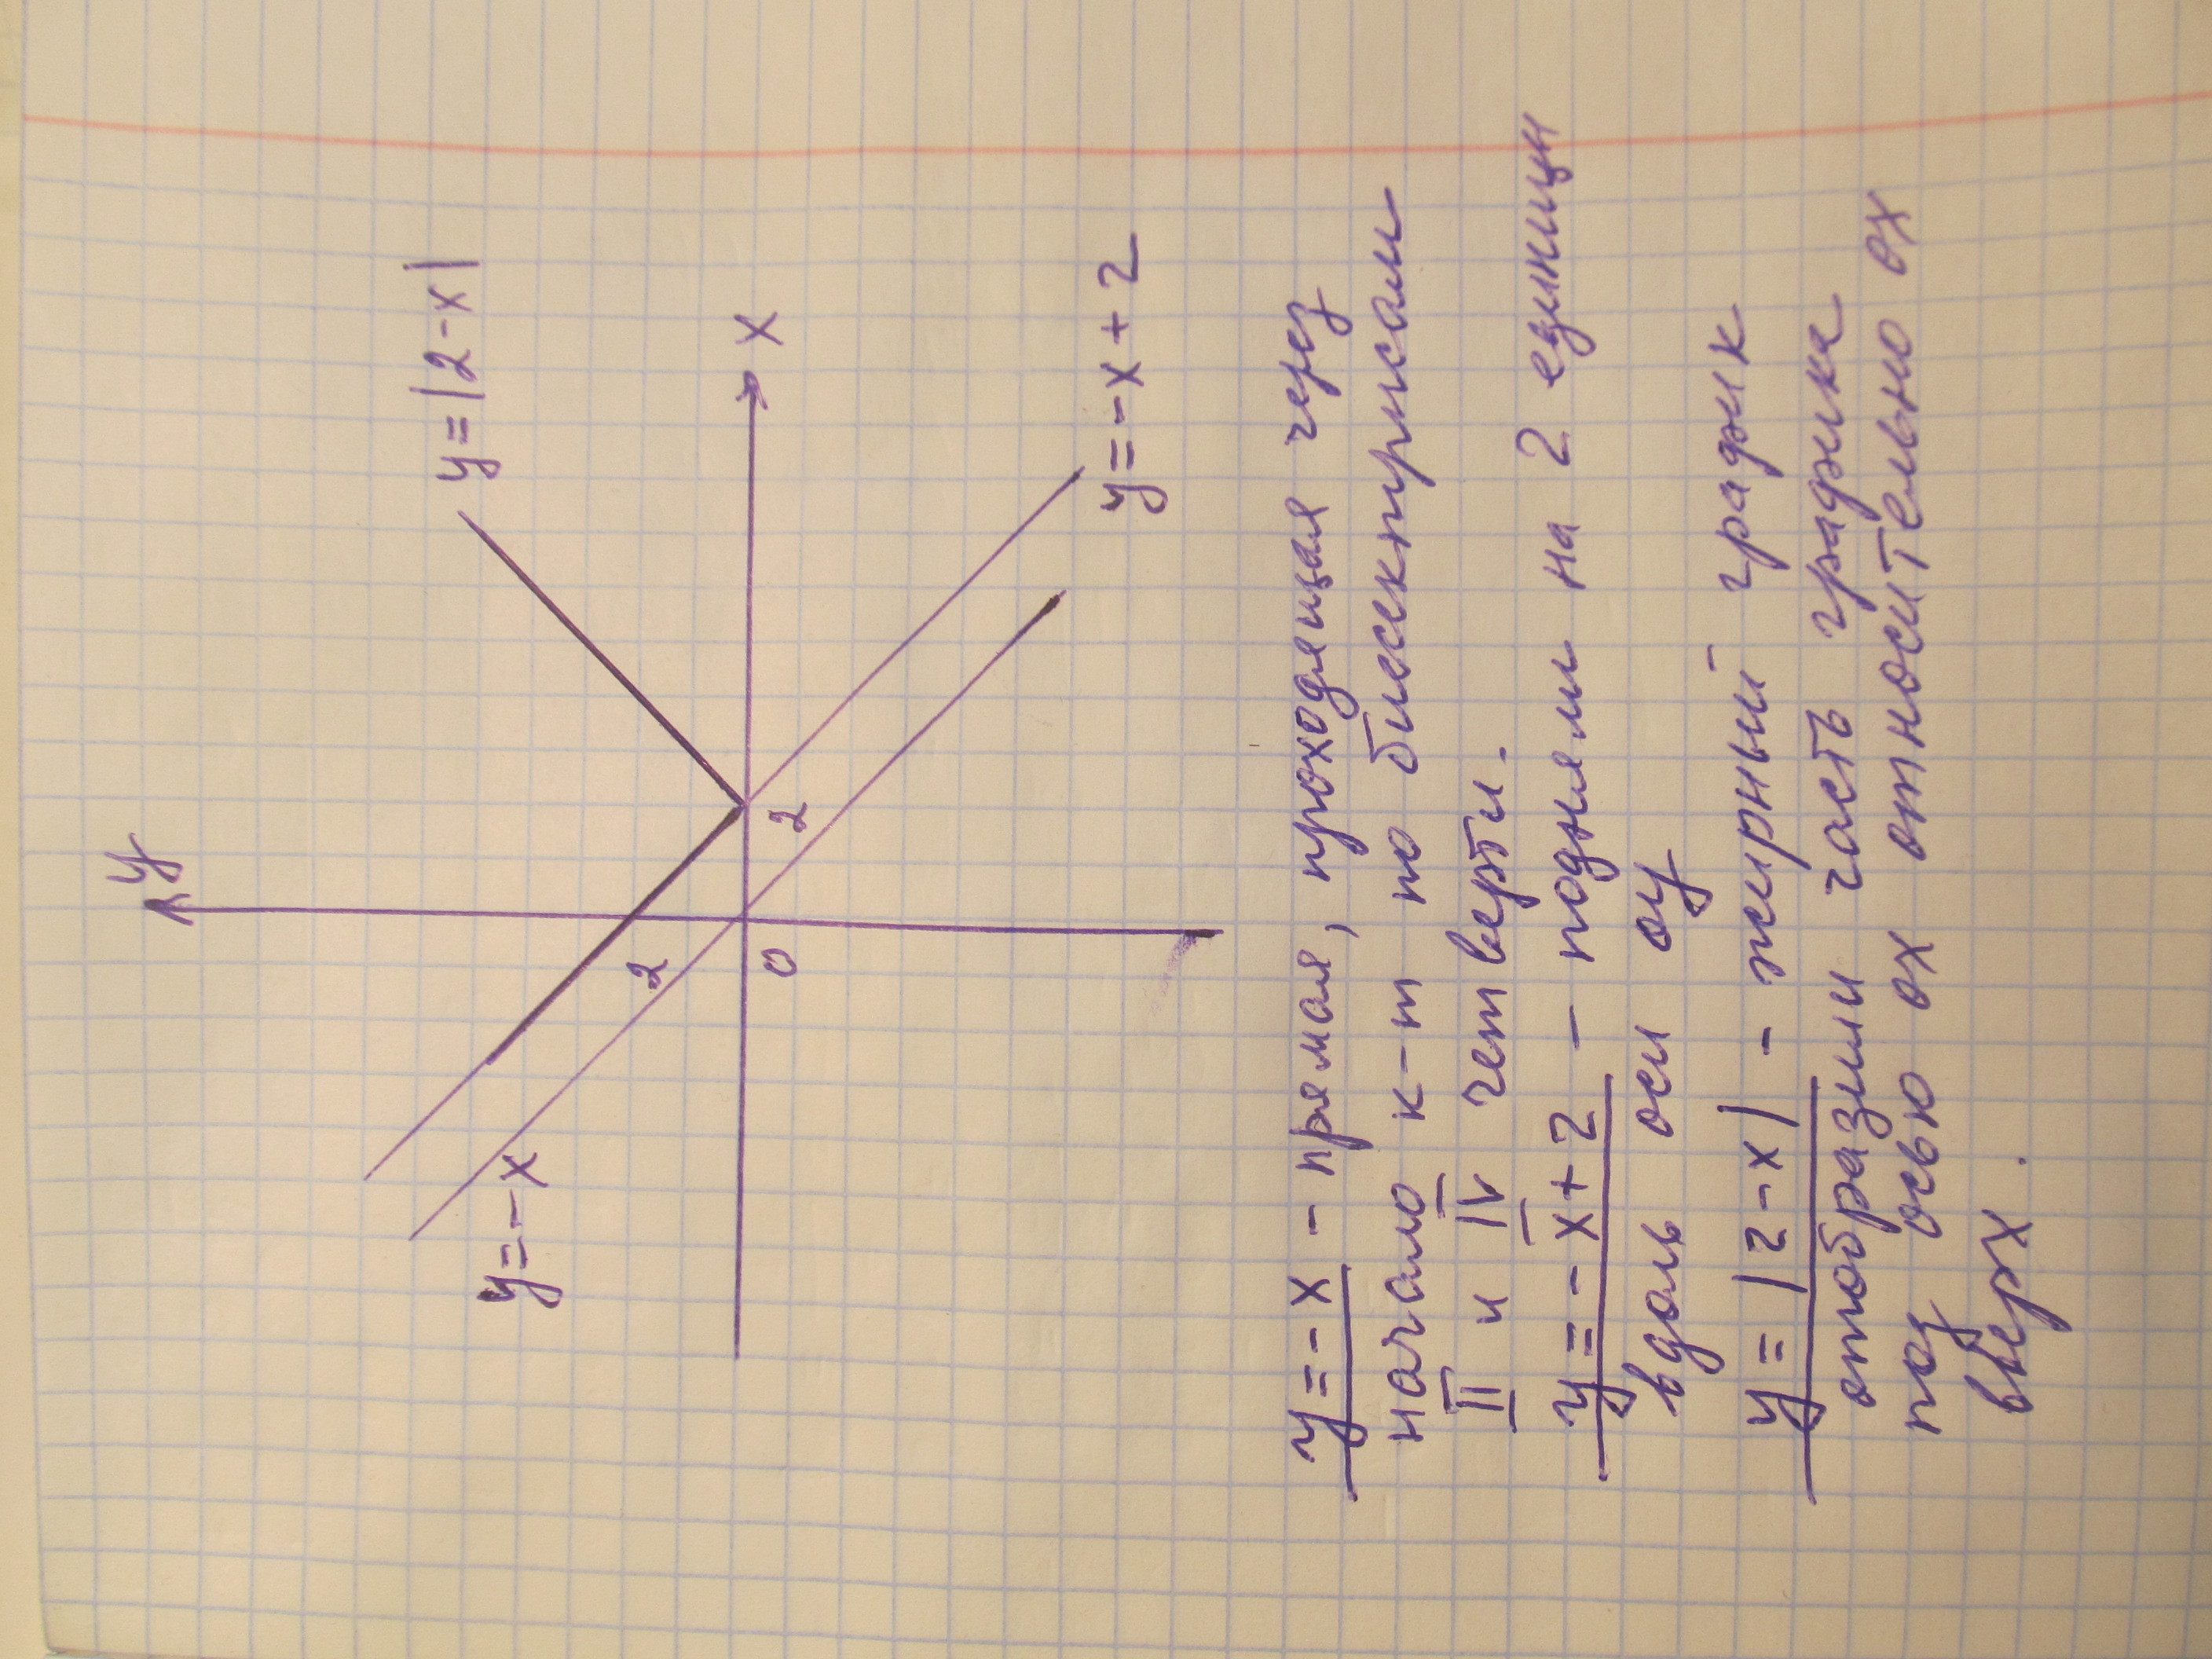 y
y=|2-x|
2
0
2
x
y=-x
y=-x+2
y=-x - прямая, проходящая через
начало к-т по биссектрисам
II и IV четверти.
y=-x+2 - подняли на 2 единицы
вдоль оси оу
y=|2-x| - жирный график
отобразили часть графика
под осью ох относительно ох
вверх.